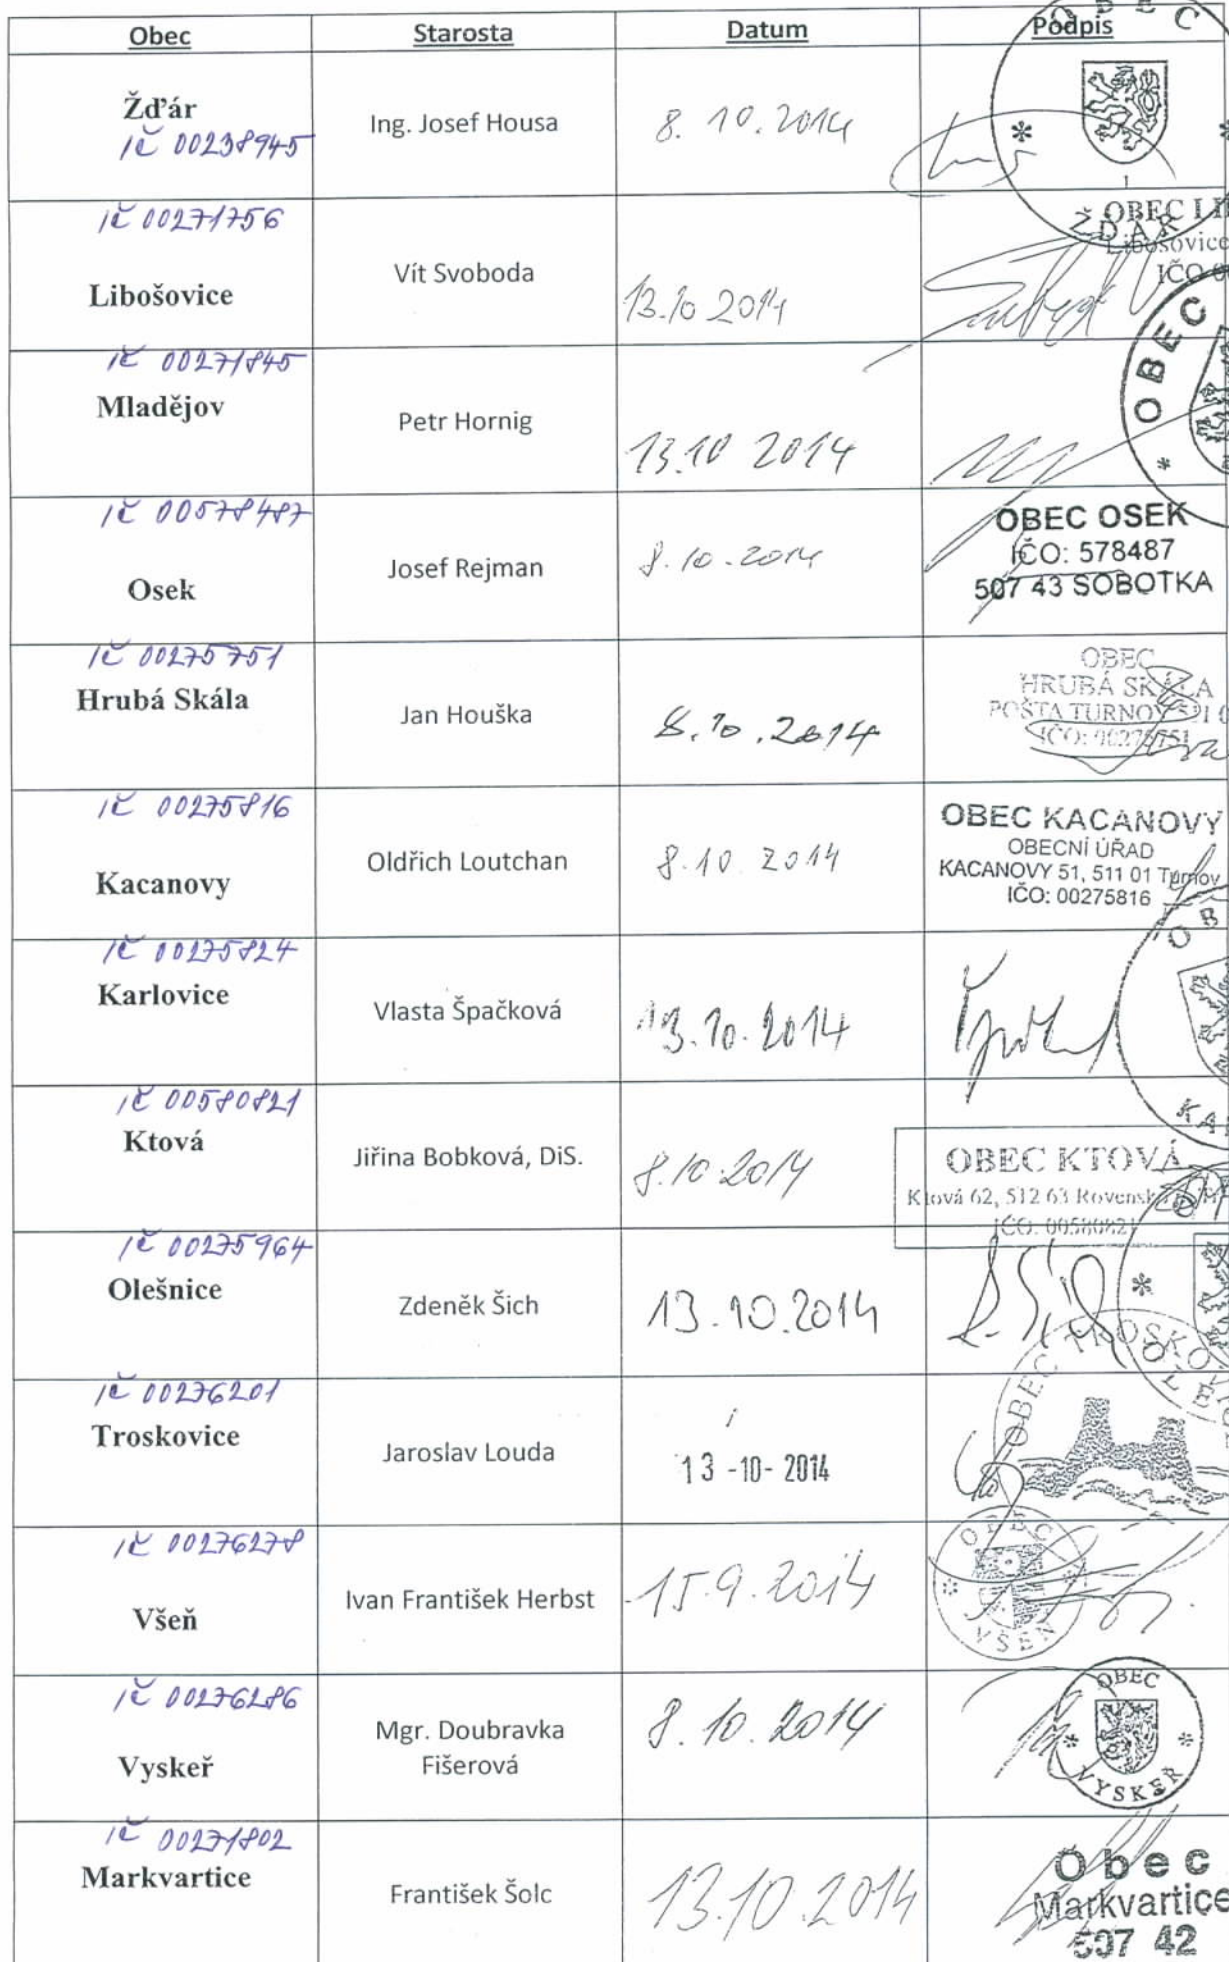 Obec Starosta Datum Podpis
Žďár Ing. Josef Housa 8. 10. 2014
IČ 00238945
OBEC
ŽĎÁR
1
IČ 00271756
OBEC LI
Libošovice
IČO 0
Libošovice Vít Svoboda 13.10 2014
OBEC
IČ 00271845
Mladějov Petr Hornig 13.10 2014
IČ 00578487
Osek Josef Rejman 8.10.2014
OBEC OSEK
IČO: 578487
507 43 SOBOTKA
IČ 00275751
Hrubá Skála Jan Houška 8.10.2014
OBEC
HRUBÁ SKÁLA
POŠTA TURNOV 511 0
IČO: 00275751
IČ 00275816
Kacanovy Oldřich Loutchan 8.10 2014
OBEC KACANOVY
OBECNÍ ÚŘAD
KACANOVY 51, 511 01 Turnov
IČO: 00275816
IČ 00275824
Karlovice Vlasta Špačková 13.10.2014
OB
KA
IČ 00580821
Ktová Jiřina Bobková, DiS. 8.10 2014
OBEC KTOVÁ
Ktová 62, 512 63 Rovensk
IČO: 00580821
IČ 00275964
Olešnice Zdeněk Šich 13.10.2014
OLE
IČ 00276201
Troskovice Jaroslav Louda 13 -10- 2014
OBEC TROSKOV
IČ 00276278
Všeň Ivan František Herbst 15.9.2014
OBEC
VŠEŇ
IČ 00276286
Vyskeř Mgr. Doubravka Fišerová 8.10.2014
OBEC
VYSKEŘ
IČ 00271802
Markvartice František Šolc 13.10.2014
Obec
Markvartice
507 42